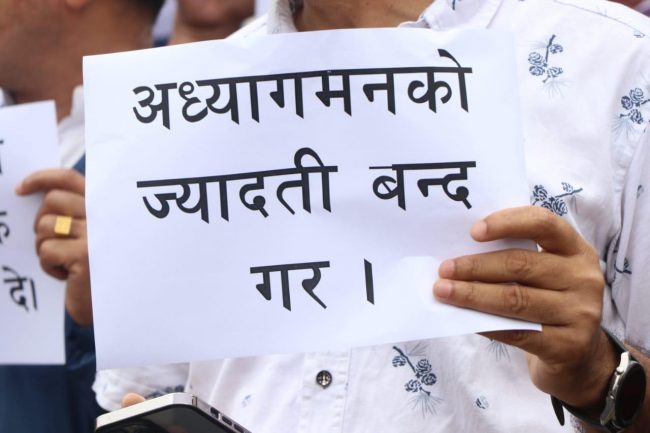 अध्यागमनको
ज्यादती बन्द
गर ।
दे।